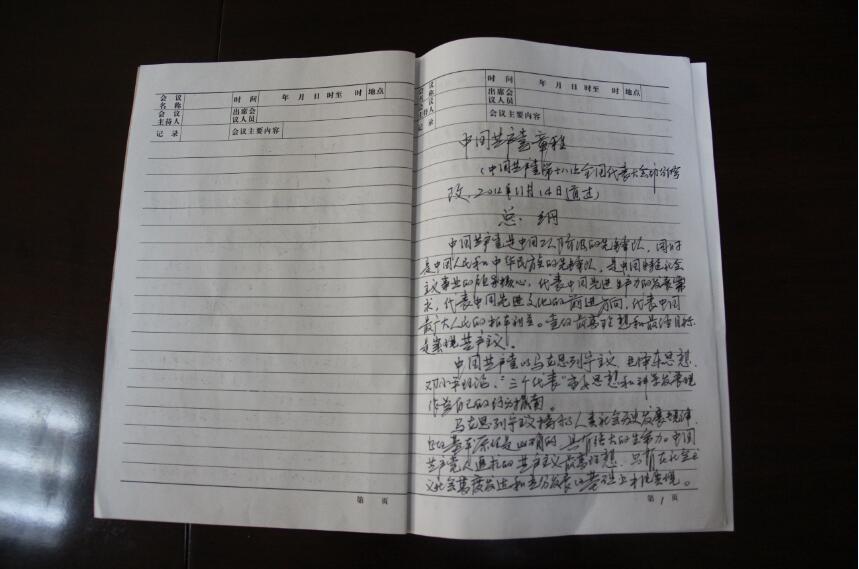 会议名称 时间 年 月 日 时至 时 地点
会议主持人 出席会议人员
记录 会议主要内容
第 页
会议名称 时间 年 月 日 时至 时 地点
会议主持人 出席会议人员
记录 会议主要内容
中国共产党章程
(中国共产党第十八次全国代表大会部分修
改,2012年11月14日通过)
总 纲
中国共产党是中国工人阶级的先锋队,同时
是中国人民和中华民族的先锋队,是中国特色社会
主义事业的领导核心,代表中国先进生产力的发展要
求,代表中国先进文化的前进方向,代表中国
最广大人民的根本利益。党的最高理想和最终目标
是实现共产主义。
中国共产党以马克思列宁主义、毛泽东思想、
邓小平理论、“三个代表”重要思想和科学发展观
作为自己的行动指南。
马克思列宁主义揭示了人类社会历史发展规律,
它的基本原理是正确的,具有强大的生命力。中国
共产党人追求的共产主义最高理想,只有在社会主
义社会高度发达和充分发展的基础上才能实现。
第 1 页